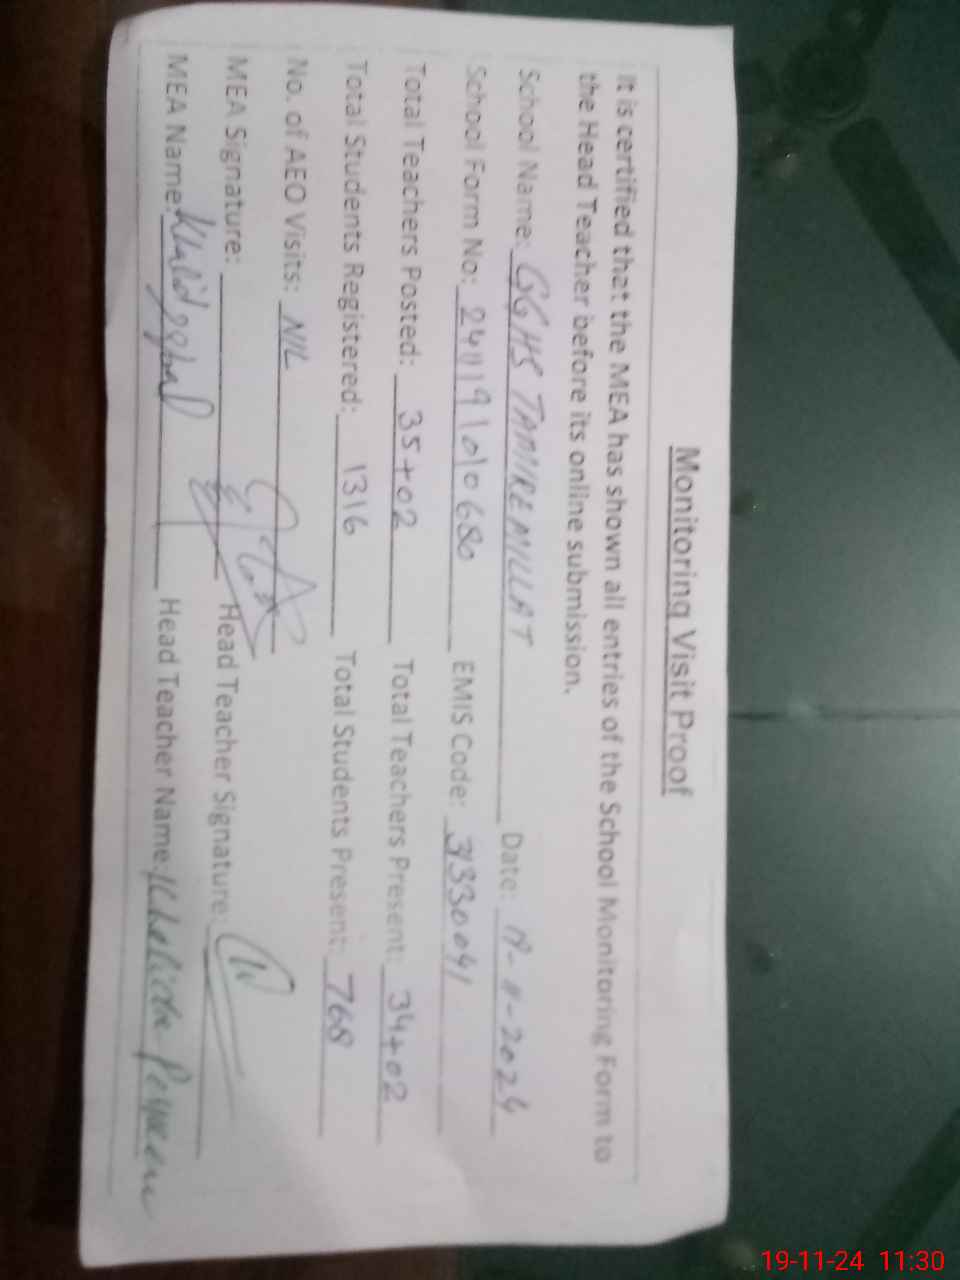 Monitoring Visit Proof
It is certified that the MEA has shown all entries of the School Monitoring Form to
the Head Teacher before its online submission.
School Name: GGHS TAMIRE MILLAT Date: 19-11-2024
School Form No: 241191010680 EMIS Code: 31330041
Total Teachers Posted: 35+02 Total Teachers Present: 34+02
Total Students Registered: 1316 Total Students Present: 768
No. of AEO Visits: NIL
MEA Signature: Head Teacher Signature:
MEA Name: Khalid Iqbal Head Teacher Name: Khalida Perveen
19-11-24 11:30